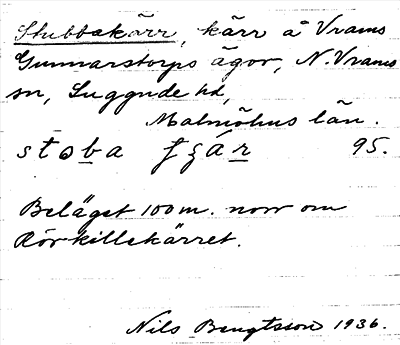 Stubbakärr, kärr å Vrams
Gunnarstorps ägor, N. Vrams
sn, Luggude hd,
Malmöhus län.
stoba 95.
Beläget 100 m. norr om
Rörkillekärret.
Nils Bengtsson 1936.